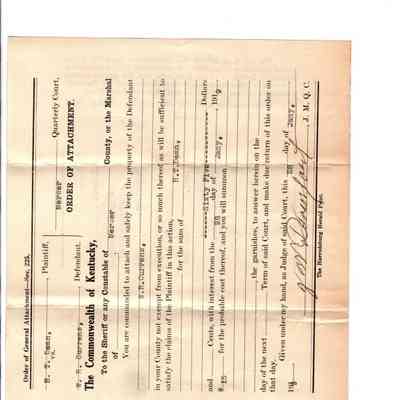 Order of General Attachment—Sec. 225.
Mercer Quarterly Court.
H. T. Dean, Plaintiff,
vs.
ORDER OF ATTACHMENT.
Defendant.
The Commonwealth of Kentucky,
To the Sheriff or any Constable of Mercer County, or the Marshal
of
You are commanded to attach and safely keep the property of the Defendant
in your County not exempt from execution, or so much thereof as will be sufficient to
satisfy the claims of the Plaintiff in this action, H.T.Dean,
for the sum of
Sixty Five Dollars
and Cents, with interest from the day of Jany, 191
for the probable cost thereof, and you will summon
, the garnishee, to answer herein on the
day of the next Term of said Court, and make due return of this order on
that day.
Given under my hand, as Judge of said Court, this day of Jany,
191
, J. M. Q. C.
The Harrodsburg Herald Print.